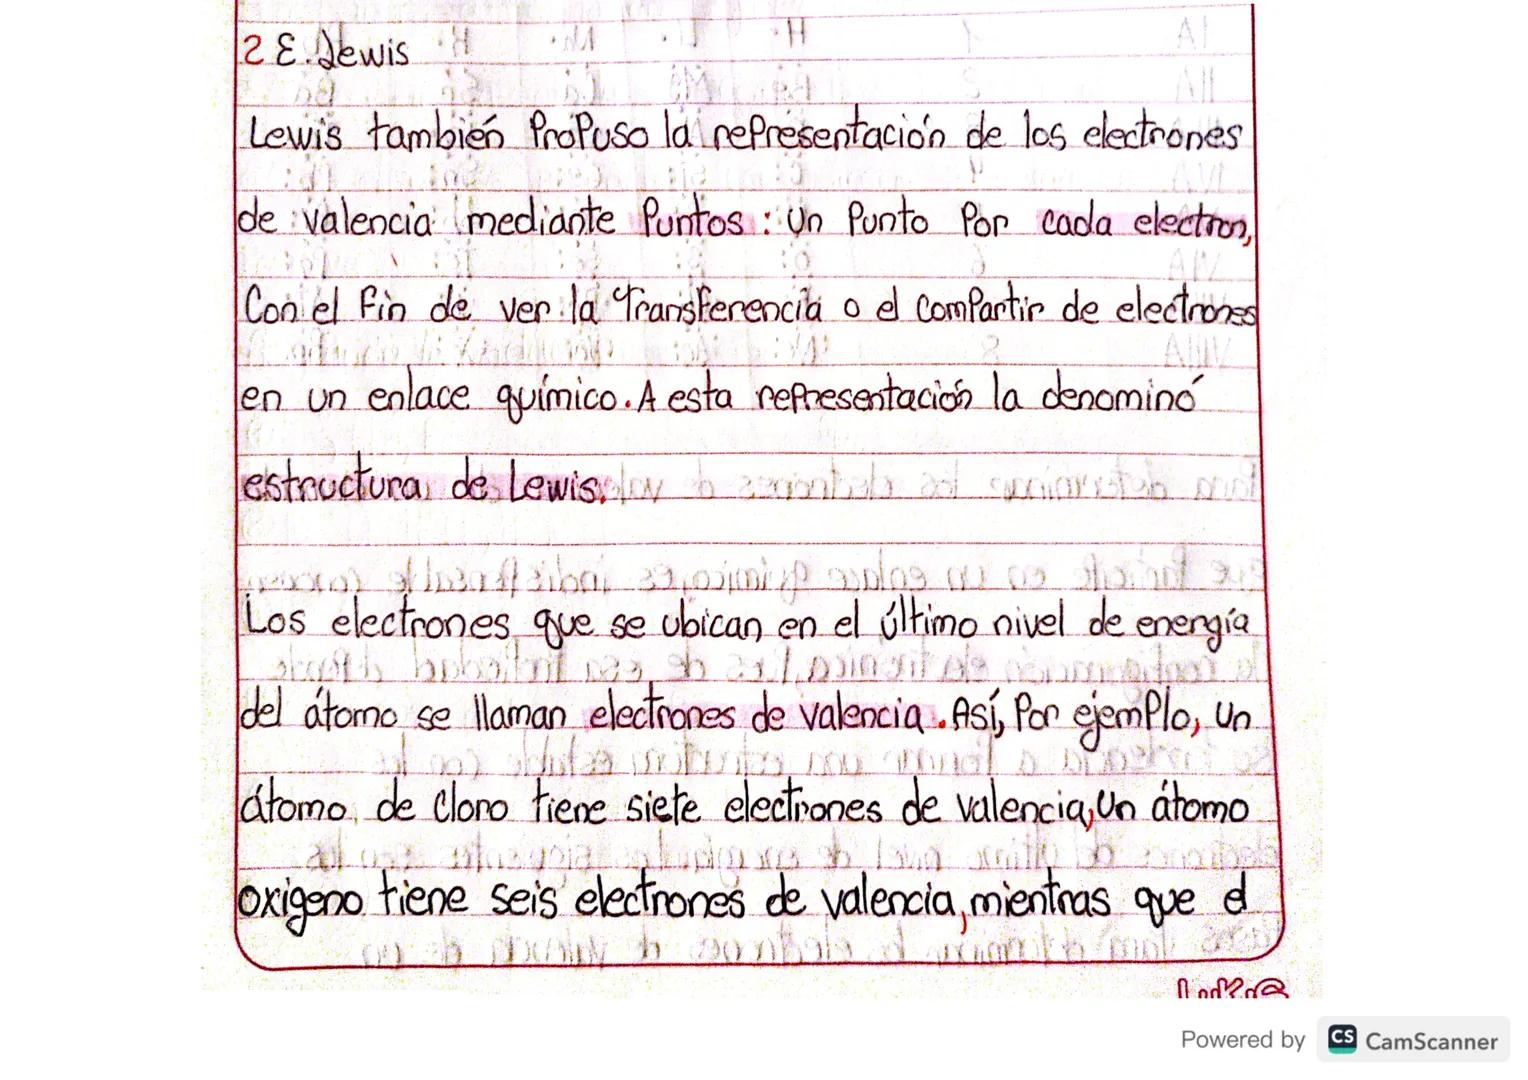 2 E. Lewis
Lewis también Propuso la representación de los electrones
de valencia mediante Puntos: Un Punto Por cada electron,
Con el fin de ver la Transferencia o el compartir de electrones
en un enlace químico. A esta representación la denominó
estructura de Lewis.
Los electrones que se ubican en el último nivel de energía
del átomo se llaman electrones de valencia. Así, Por ejemplo, un
átomo de cloro tiene siete electrones de valencia, Un átomo
oxigeno tiene seis electrones de valencia, mientras que el
Powered by CS CamScanner